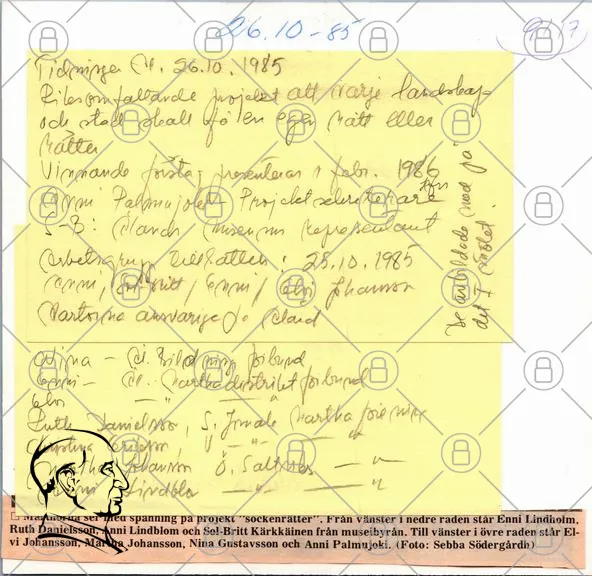 26.10-85
Tidningen Ål. 26.10.1985
projekt att varje landskap
och stad skall få en egen rätt eller
rätter
Vinnande förslag presenteras i febr. 1986
Anni Palmujoki - Projektsekreterare
S-B: Ålands museums representant
arbetsgrupp tillsattes: 25.10.1985
Anni, Sol-Britt, Enni, Elvi Johansson
Martorna ansvariga på Åland
Nina - Ål. Bildningsförbund
Enni - Ål. Marthadistriktförbund
Elvi - " - "
Ruth Danielsson, S. Jomala Marthaförening
Johansson Ö. Saltvik - " -
Anni Lindblom - " - "
De avbildade med på
det I mötet
Marthorna ser med spänning på projekt "sockenrätter". Från vänster i nedre raden står Enni Lindholm,
Ruth Danielsson, Anni Lindblom och Sol-Britt Kärkkäinen från museibyrån. Till vänster i övre raden står El-
vi Johansson, Martha Johansson, Nina Gustavsson och Anni Palmujoki. (Foto: Sebba Södergårdh)